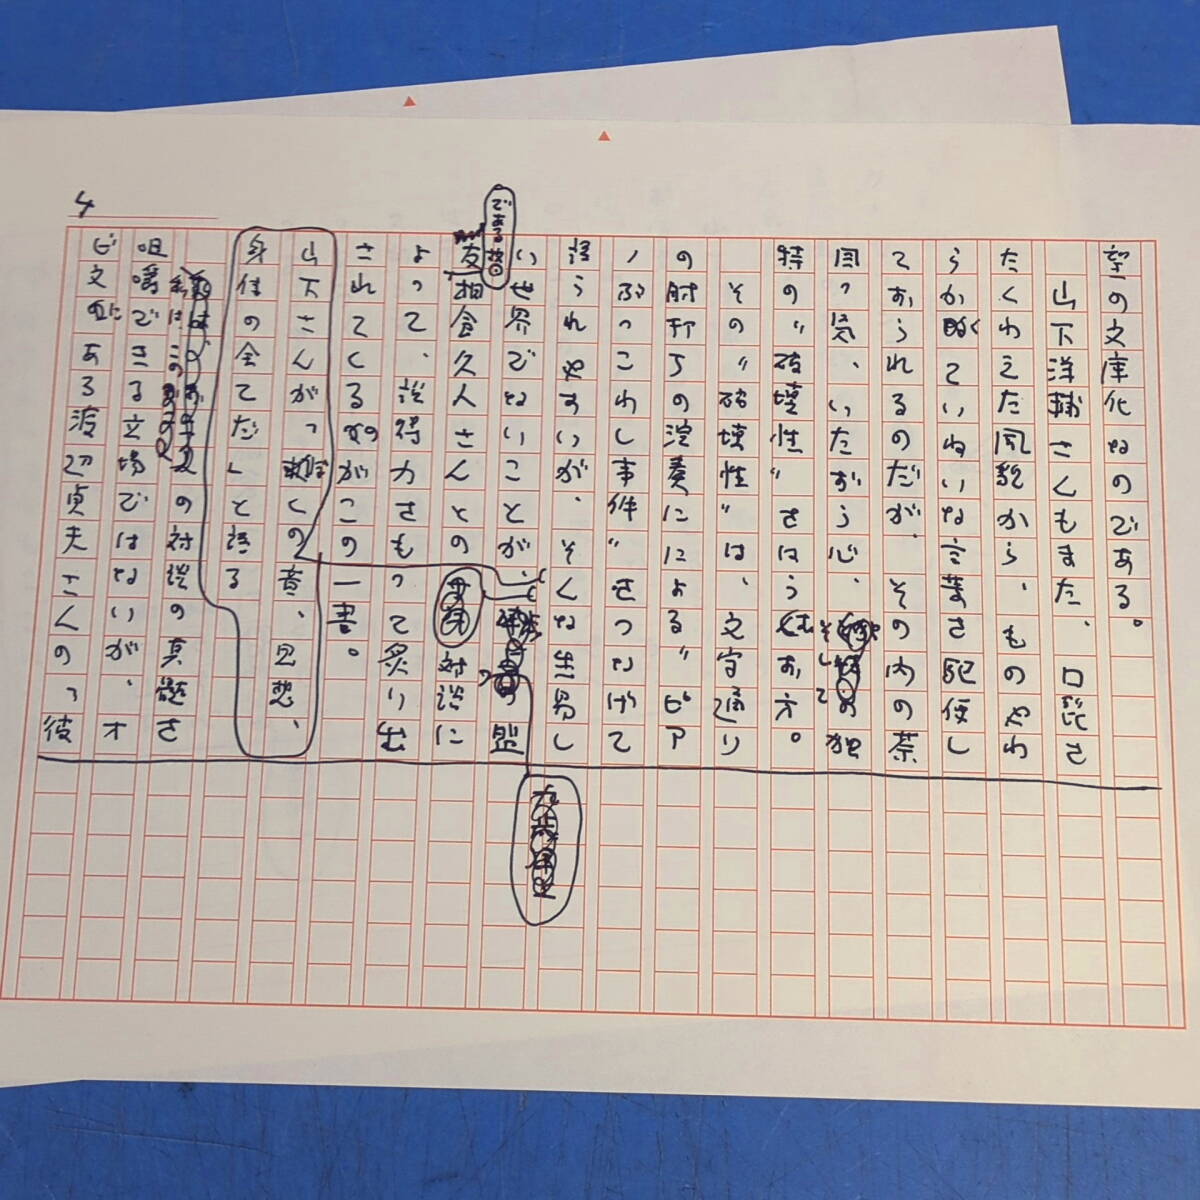 4
望の文庫化なのである。
山下洋輔さんもまた、口髭を
たくわえた風貌から、ものやわ
らかくていねいな言葉を駆使し
ておられるのだが、その内の茶
目っ気、いたずら心、そして独
特の〝破壊性〟をはらむお方。
その〝破壊性〟は、文字通り
の肘打ちの演奏による〝ピア
ノぶっこわし事件〟をつなげて
語られやすいが、そんな生易し
い世界でないことが、盟
友相倉久人さんとの対談に
である
よって、説得力をもって炙り出
されてくるのがこの一書。
山下さんが「ぼくの音、思想、
身体の全てだ」と語る
私はこの対談の真髄を
咀嚼できる立場ではないが、オ
ビ文にある渡辺貞夫さんの「彼